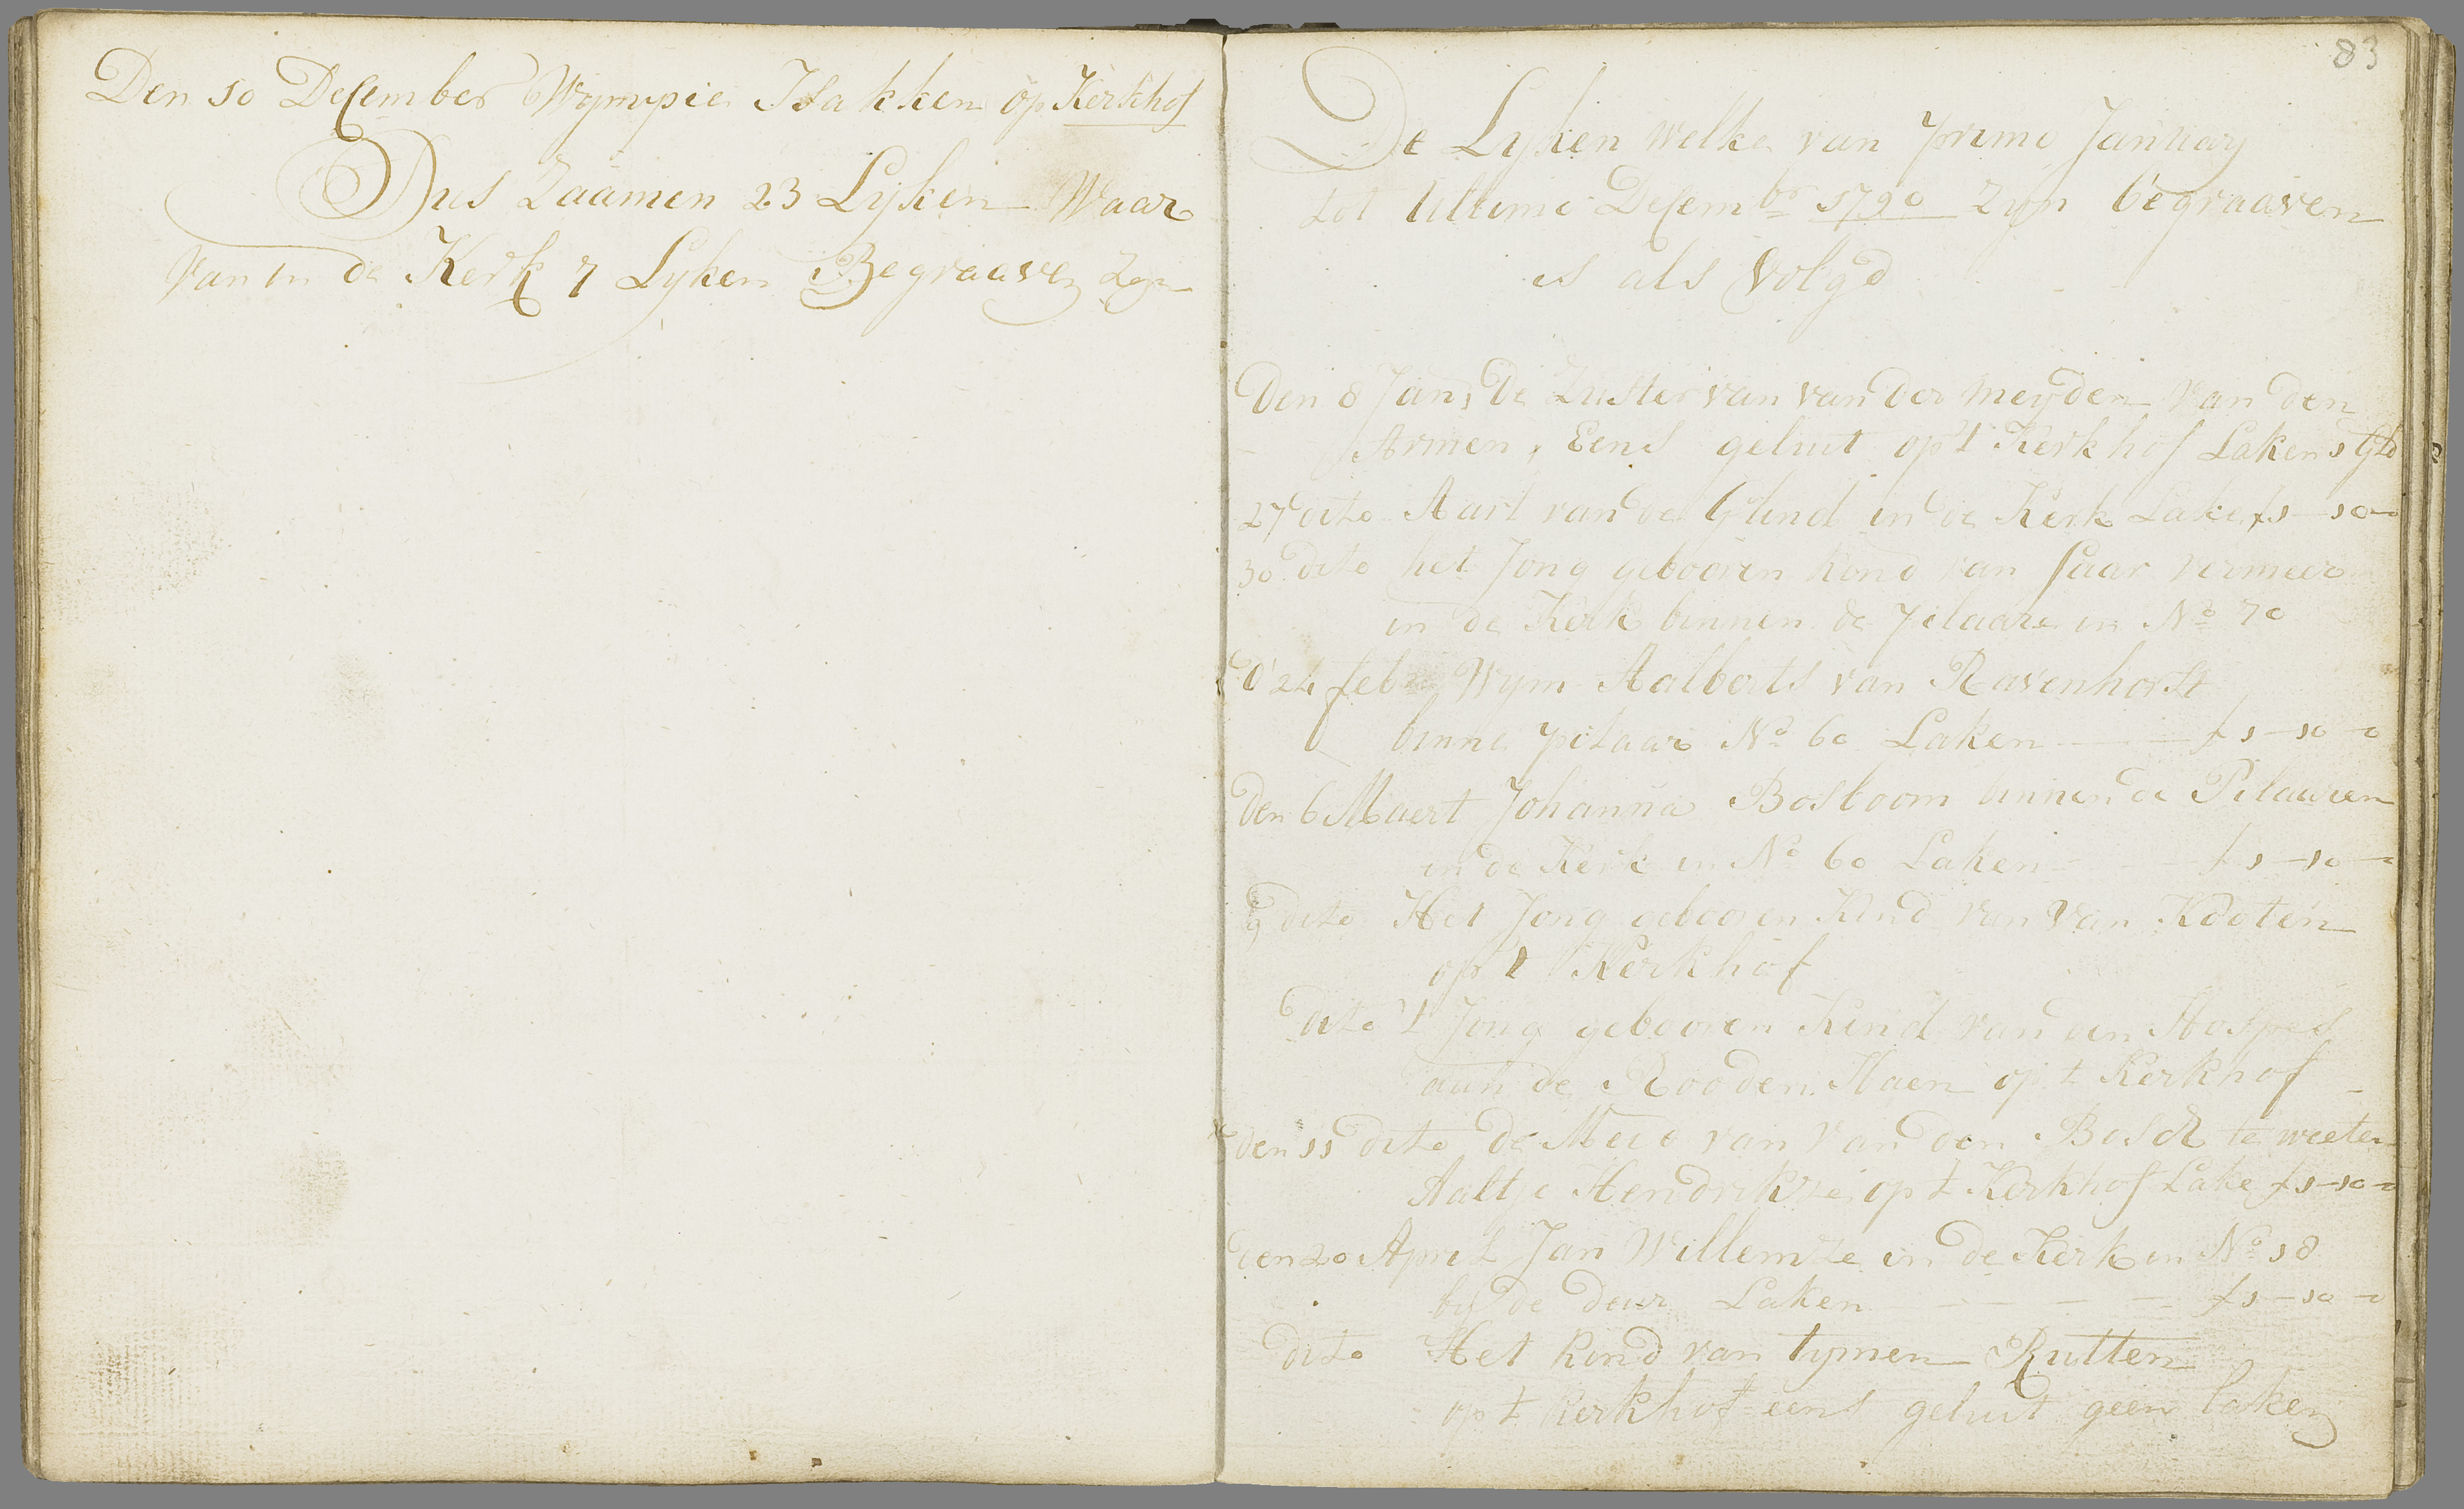 Den 10 December Wympie Isakken op Kerkhof
Dus Zaamen 23 Lyken Waar
van in de Kerk 7 Lyken Begraaven Zyn
83
De Lyken welke van primo January
tot Ultimo Decembr 1790 Zyn begraaven
is als Volgd
Den 8 Jan, De Zuster van van der Meyden van den
Armen, Eens geluit op 't Kerkhof Laken 1 Gld
27 dito Aart van de Glind in de Kerk Lake f 1-10-0
30 dito het Jong gebooren kind van Saar vermeer
in de Kerk binnen de pilaare in No 70
D 24 feb Wym Aalberts van Ravenhorst
binne pilaar No 60 Laken — f 1-10-0
Den 6 Maert Johanna Bosboom binnen de Pilauren
in de Kerk in No 60 Laken f 1-10-0
9 dito Het Jong gebooren Kind van van Kooten
op 't Kerkhof
dito 't Jong gebooren Kind van den Hospes
aan de Rooden Haen op t Kerkhof
den 11 dito de Meid van van den Bosch te weeten
Aaltje Hendrikze op t Kerkhof Lake f 1-10-0
den 20 April Jan Willemze in de Kerk in No 18
by de deur Laken — — — — f 1-10-0
dito Het kind van tymen Rutten
op t kerkhof eens geluit geen laken